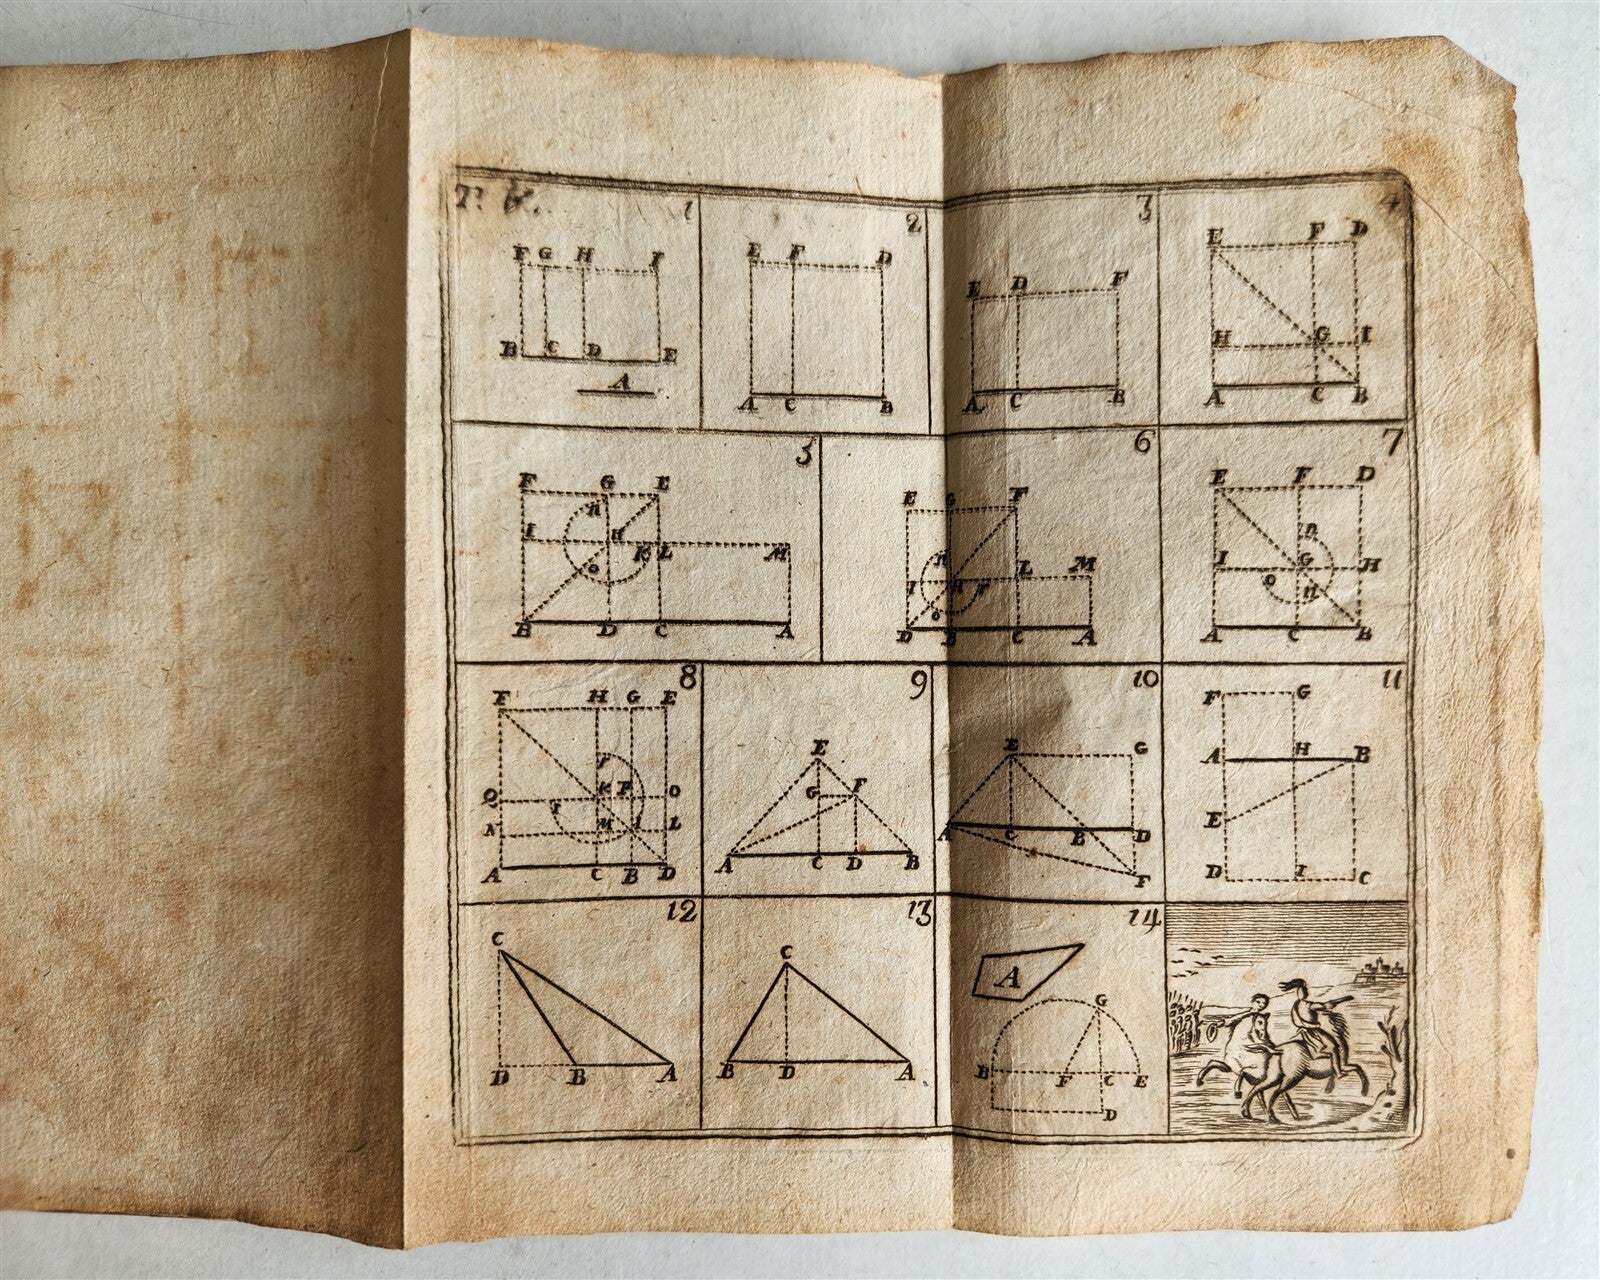 1
F G H I
B C D E
A
2
E F D
A C B
3
E D F
A C B
4
E F D
H G I
A C B
5
F G E
N
I H K L M
O
B D C A
6
E G F
N
I H L M
O
D B C A
7
E F D
N
I G H
O
A C B
8
F H G E
Q K P O
N M I L
A C B D
9
E
G F
A C D B
10
E G
A C B D
F
11
F G
A H B
E
D I C
12
C
D B A
13
C
B D A
14
A
G
B F C E
D